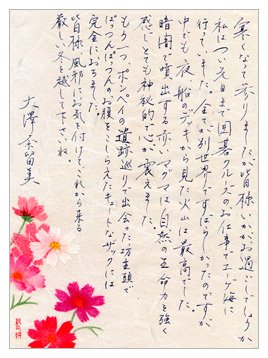 寒くなって参りましたが皆様いかがお過ごしでしょうか
私はつい先日まで回暮クルーズのお仕事でエーゲ海に
行ってました。全てが別世界ですばらしかったのですが
中でも夜、船のデッキから見た火山は最高でした。
暗闇で噴出する赤いマグマは自然の生命力を強く
感じとても神秘的で心が震えました。
もう一つ、ポンペイの遺跡巡りで出会った坊主頭で
ぱっつんぱっつんのお腹をこしらえたキュートなザックには
完全におちました。
皆様風邪にお気を付けてこれから来る
厳しい冬を越して下さいね
大澤
美